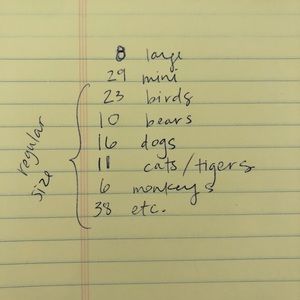 8 large
29 mini
23 birds
10 bears
16 dogs
11 cats/tigers
6 monkeys
38 etc.
regular
size